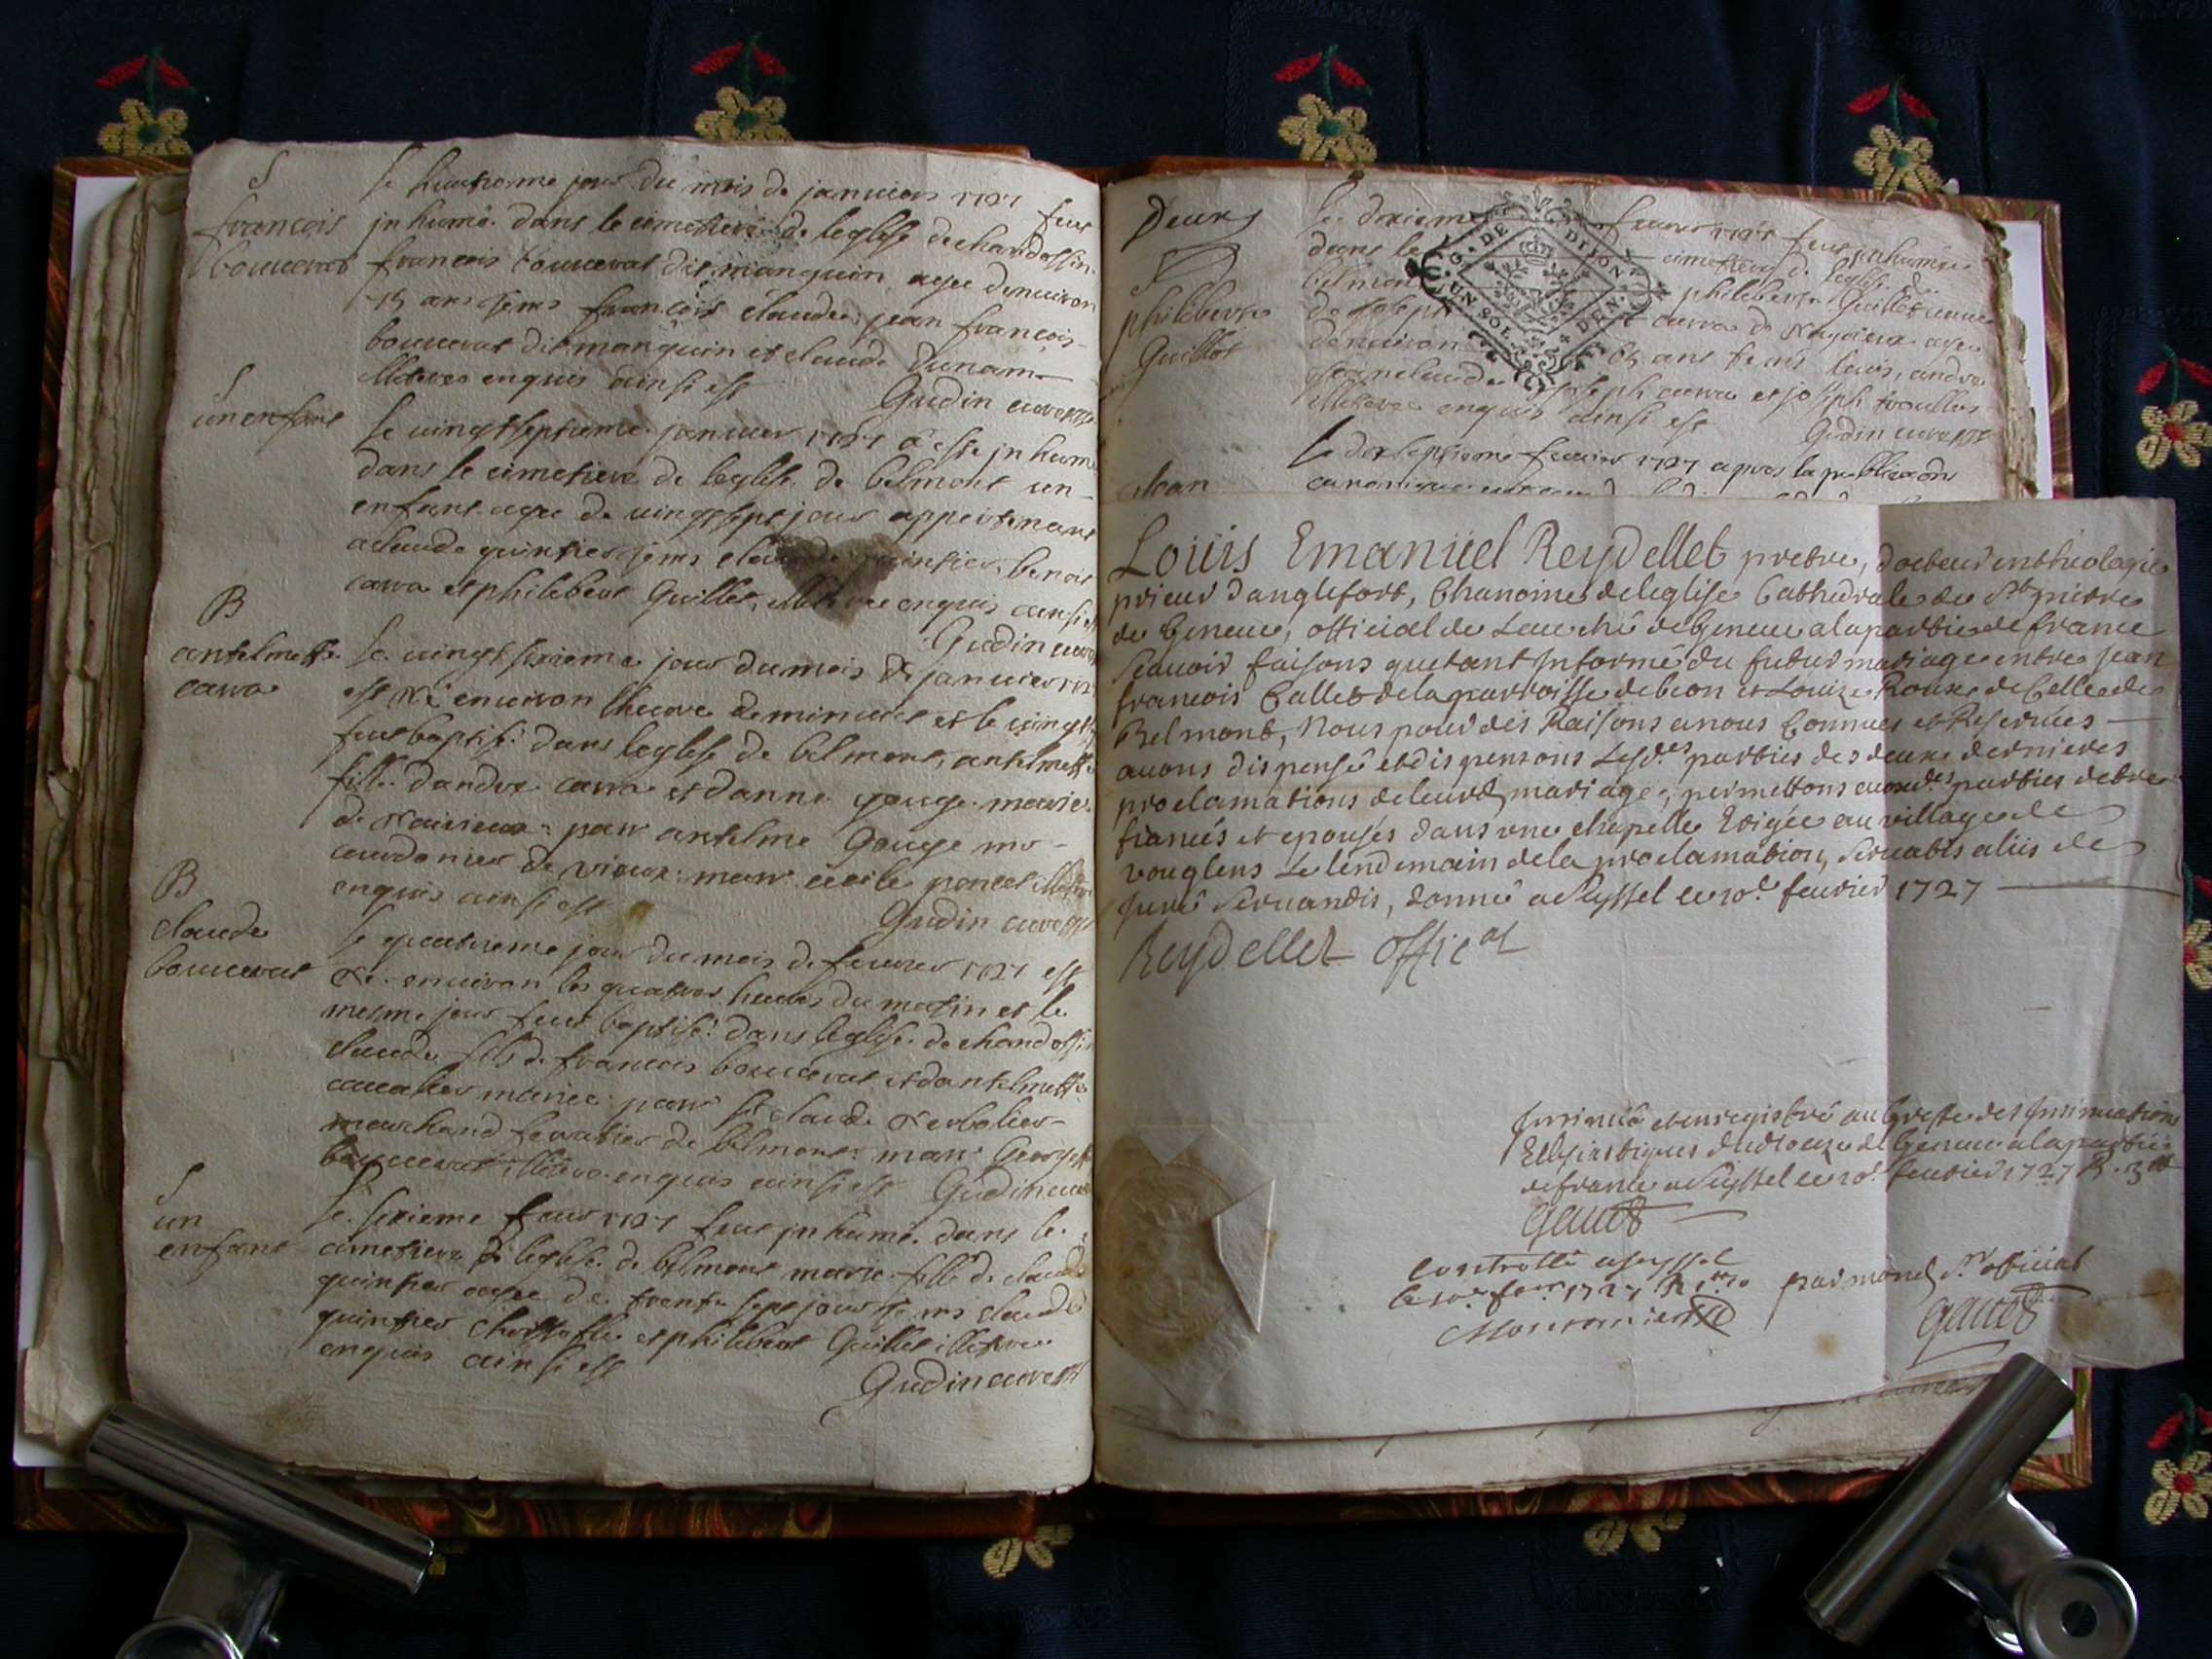 S
françois
bouuerat
le huictieme jour du mois de januier 1727 feut
jn humé dans le cimetiere de leglise de chandossin
francois bouuerat dit manguin agee denuiron
ans tems françois claude jean françois
bouuerat dit manguin et claude dunam
illeteres enquis ainsi est
Gudin curé
S
un enfant
le uingt septieme januier 1727 a este jn humé
dans le cimetiere de leglise de belmont un
enfant agee de uingt sept jour appertenant
a claude quintier tems claude quintier, benoit
carra et philebert Guillet, illetere enquis ainsi est
Gudin curé
B
antelmette
carra
le uingt sixieme jour du mois de januier 172
est né enuiron lheure de minuict et le uingt
feut baptisé dans leglise de belmont, antelmette
fille dandre carra et danne gouge mariée
de par antelme Gouge mo
courdonier de vieux: marr cecile poncet illetere
enquis ainsi est
Gudin curé
B
claude
bouuerat
le quatrieme jour du mois de feurier 1727 est
né enuiron les quatres heures du matin et le
mesme jour feut baptisé dans leglise de chandossin
claude fils de francois bouuerat et dantelmette
mariee parr Sr claude
marchand de belmont marr Georgette
bouuerat illetere enquis ainsi est Gudin curé
S
un
enfant
le sixieme feur 1727 feut jn humé dans le
cimetiere de leglise de belmont marie fille de claude
quintier agee de trente sept jour tems claude
quintier et philebert Guillet illetere
enquis ainsi est
Gudin curé
Deux
S
philiberte
Guillot
le dixieme feurier 1727 feut jn humée
dans le cimetiere de leglise de
belmont philiberte Guillet
de Joseph carra de agee
denuiron 65 ans tems louis, andre
jean claude Joseph carra et joseph
illeteree enquis ainsi est
Gudin curé
G. DE DIJON
UN SOL DEN.
Jean
le dix septieme feurier 1727 apres la publication
Loüis Emanüel Reydellet pretre, docteur en theologie
prieur danglefort, Chanoine de leglise Cathedrale de St pierre
de Geneue, official de Leueché de Geneue a la partie de france
Scauoir faisons quetant Informé du futur mariage entre Jean
francois Callet de la parroisse de beon et Louize Roux de Celle de
Belmont, Nous pour des Raisons a nous Connues et Reseruées
auons dispensé et dispensons Lesd.es parties des deux dernieres
proclamations de leurd mariage, permettons auxd.es parties detre
fiancés et epousés dans une chapelle Erigée au village de
vouglens Le lendemain de la proclamation, Seruatis aliis de
Jure Seruandis, donné a Seyssel le 10.e feurier 1727
Reydellet offical
Insinué et enregistré au Greffe des Insinuations
Ecclesiastiques du dioceze de Geneue a la partie
de france a Seyssel le 10.e feurier 1727 R. 3
Gauet
Controllé a Seyssel
le 10e feur 1727 R
par mond Sr official
Gauet